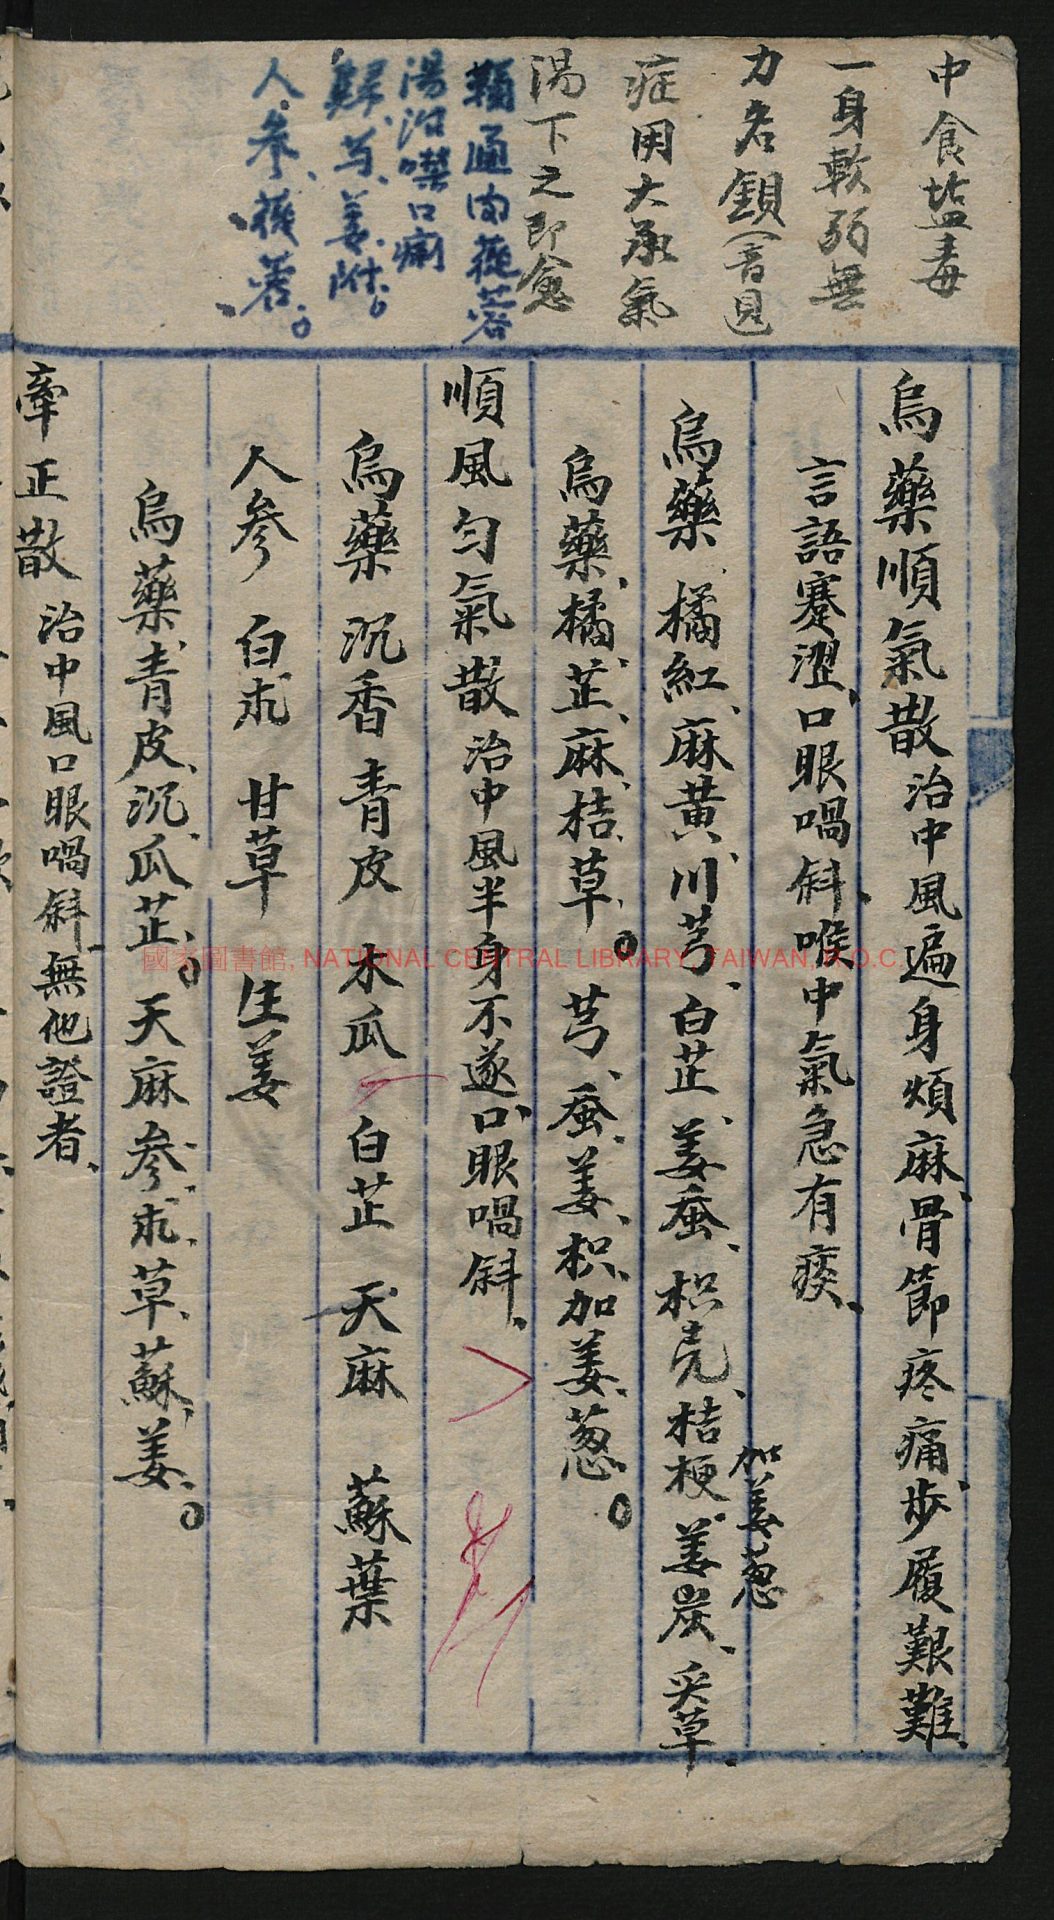 中食塩毒
一身軟弱無
力名鎖(音見
症用大承氣
湯下之即愈
湯治噤口痢
歸芍姜附。
人參
烏藥順氣散治中風遍身頑麻、骨節疼痛、步履艱難、
言語蹇澀、口眼喎斜、喉中氣急有痰、
加姜葱
烏藥、橘紅、麻黃、川芎、白芷、姜蚕、枳壳、桔梗、姜炭、炙草、
烏藥、橘、芷、麻、桔、草、。芎、蚕、姜、枳、加姜、葱、。
順風勻氣散治中風半身不遂、口眼喎斜、
烏藥 沉香 青皮 木瓜 白芷 天麻 蘇葉
人參 白朮 甘草 生姜
烏藥、青皮、沉、瓜、芷、。天麻、參、朮、草、蘇、姜、。
牽正散 治中風口眼喎斜、無他證者、
國家圖書館, NATIONAL CENTRAL LIBRARY, TAIWAN, R.O.C.